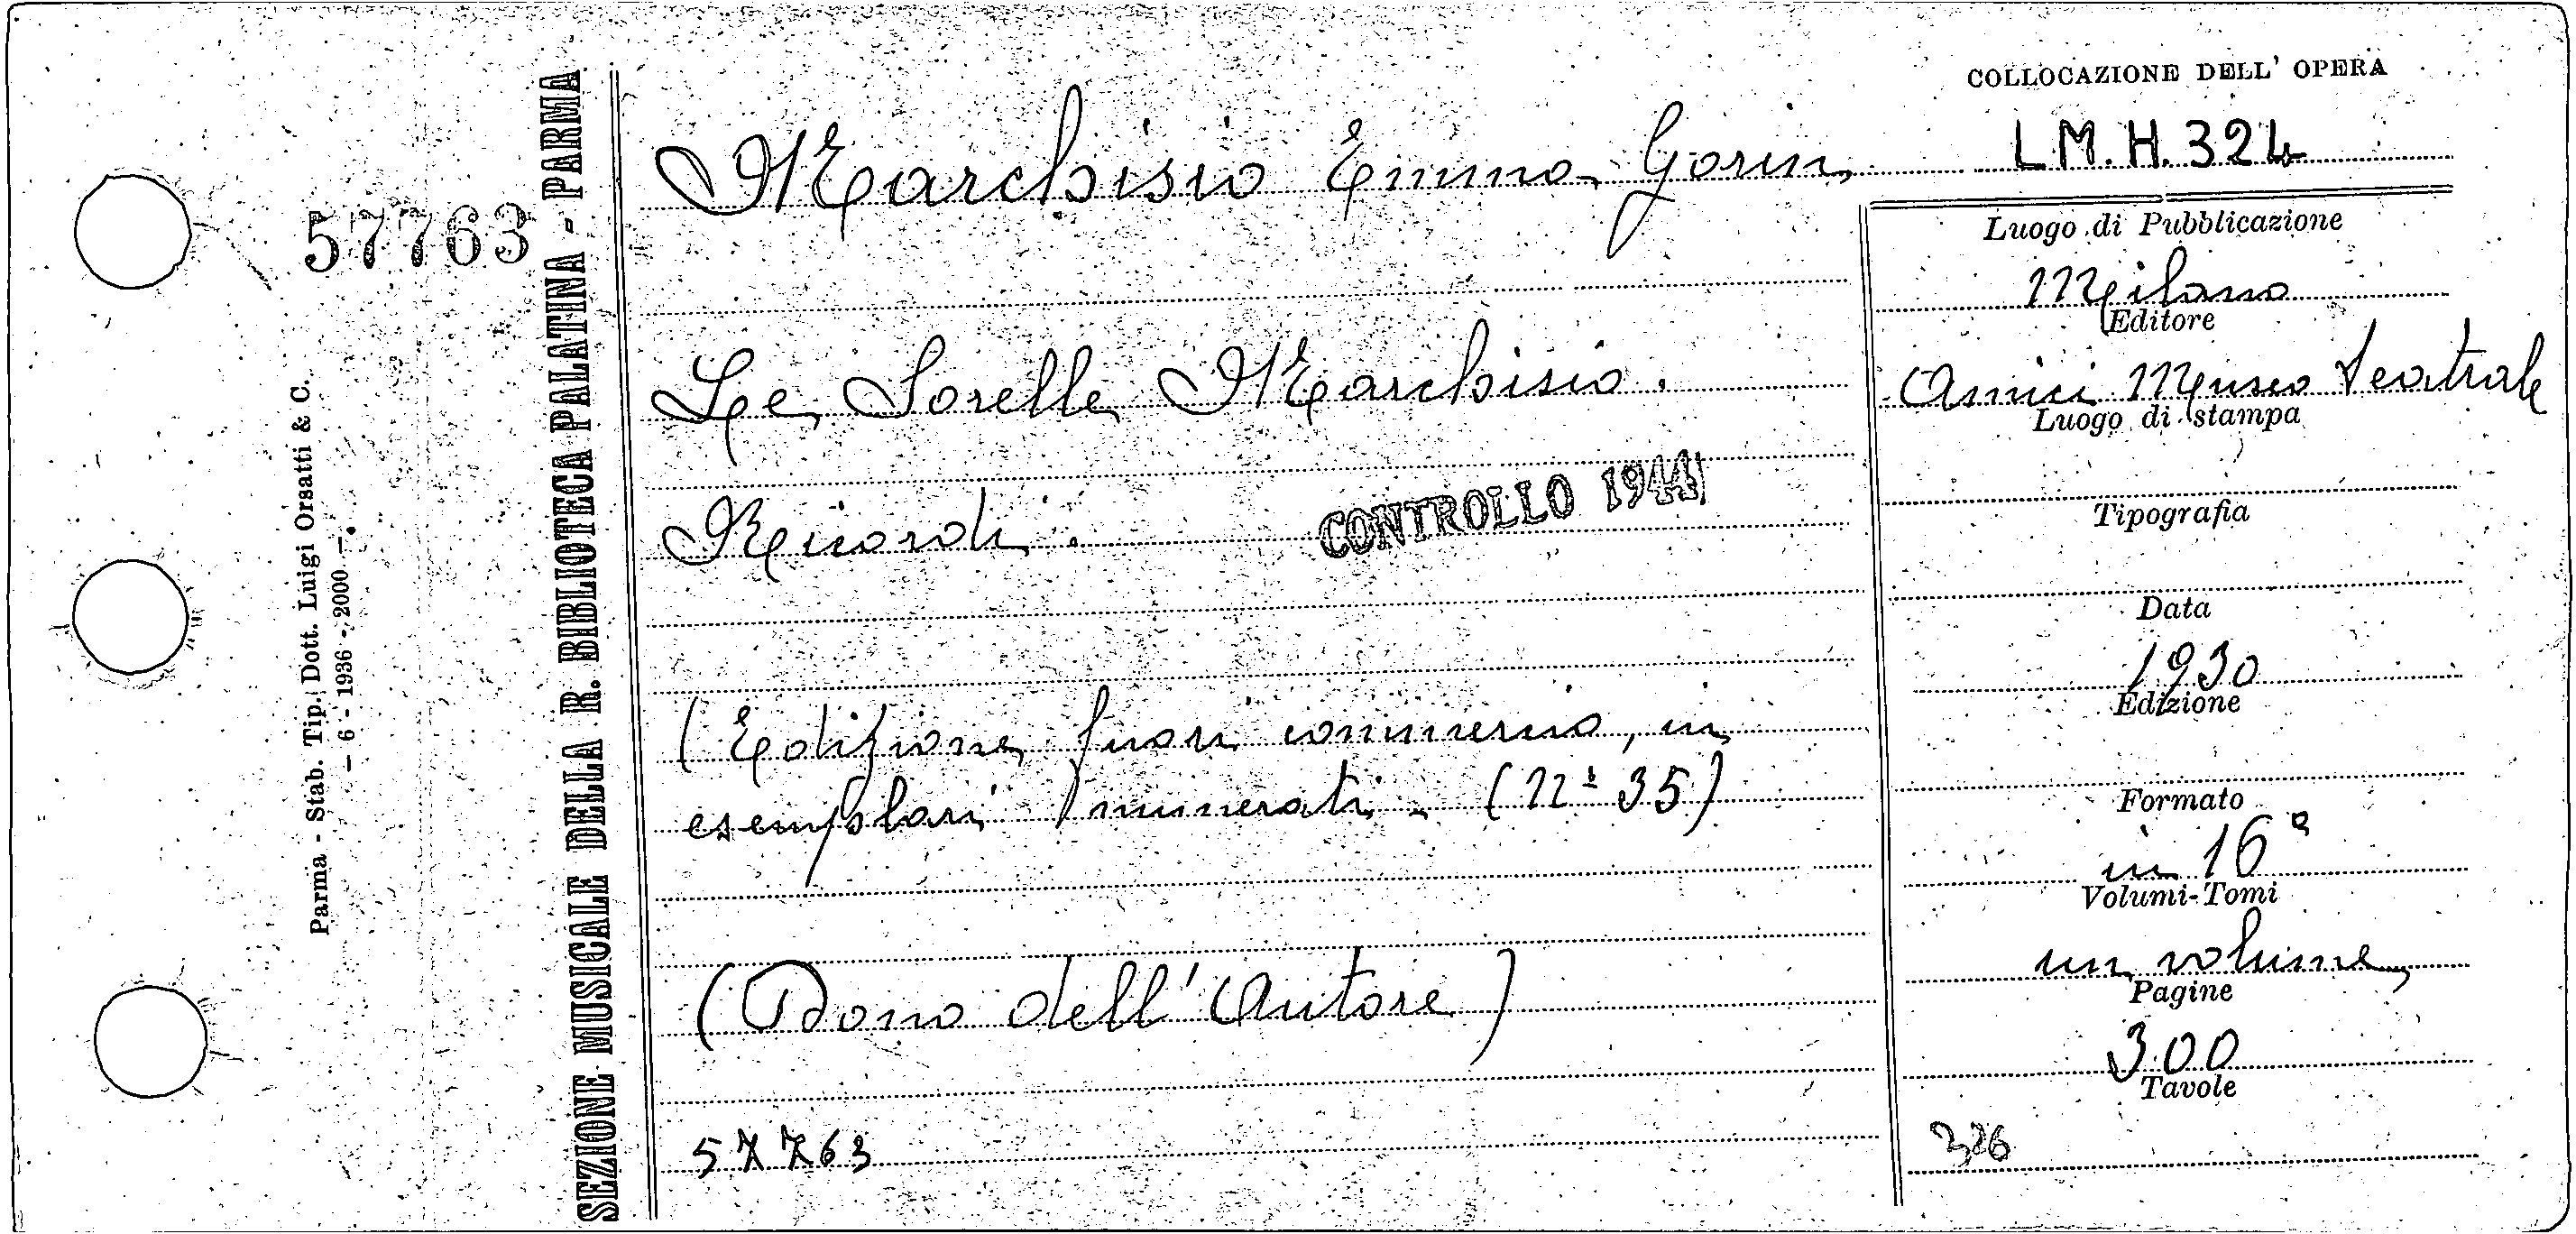 COLLOCAZIONE DELL' OPERA
LM. H. 324
Marchisio Emma Gorin
Le Sorelle Marchisio.
Ricordi.
CONTROLLO 1944
(Edizione fuori commercio, in
esemplari numerati - (nº 35)
(Dono dell'Autore)
57763
Luogo di Pubblicazione
Milano
Editore
Amici Museo Teatrale
Luogo di stampa
Tipografia
Data
1930
Edizione
Formato
in 16º
Volumi-Tomi
un volume
Pagine
300
Tavole
326
57763
SEZIONE MUSICALE DELLA R. BIBLIOTECA PALATINA - PARMA
Parma - Stab. Tip. Dott. Luigi Orsatti & C.
— 6 - 1936 - 2000 —